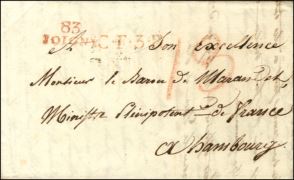 83
JOIGNY C.F.3.R
A Son Excellence
Monsieur le Baron de
Ministre Plénipotent.re de france
a hambourg.